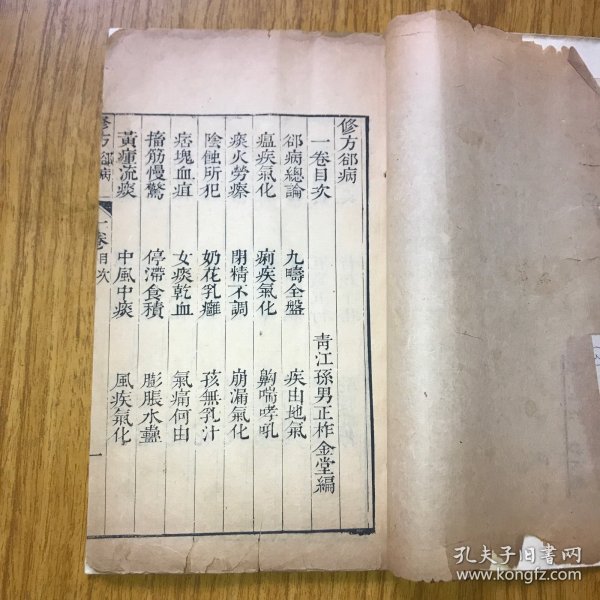 修方郤病
一卷目次
青江孫男正柞金堂編
郤病總論 九疇全盤 疾由地氣
瘟疾氣化 痢疾氣化 齁喘哮吼
痰火勞瘵 閉精不調 崩漏氣化
陰蝕所犯 奶花乳癰 孩無乳汁
痞塊血疽 女痰乾血 氣痛何由
搐筋慢驚 停滯食積 膨脹水蠱
黃疸流痰 中風中痰 風疾氣化
修方郤病 一卷 目次 一
孔夫子旧書网
www.kongfz.com